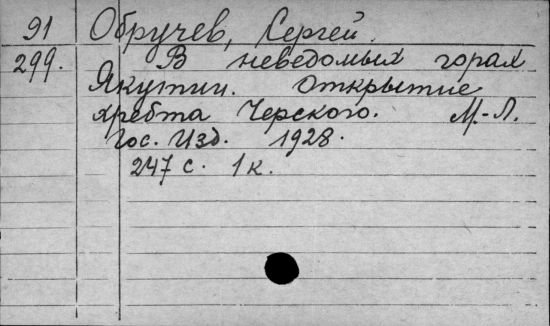 91 Обручев, Сергей.
299. В неведомых горах
Якутии. Открытие
хребта Черского. М.-Л.
Гос. Изд. 1928.
247 с. 1 к.